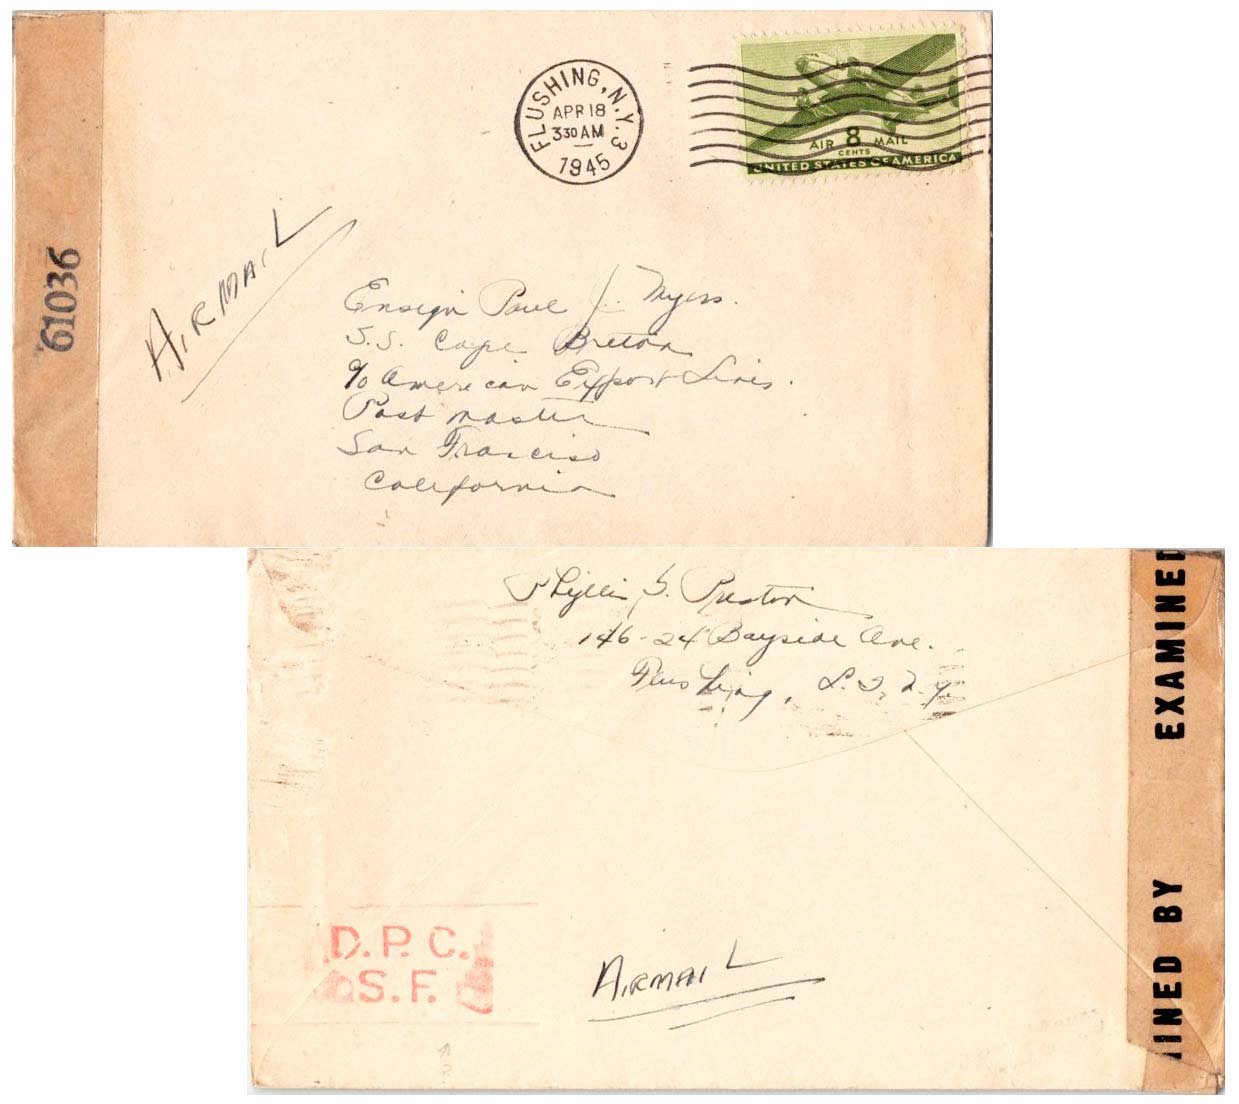 FLUSHING, N.Y. 3
APR 18
3 30 AM
1945
AIR 8 MAIL
CENTS
UNITED STATES OF AMERICA
61036
AIRMAIL
Ensign Paul J. Myers.
S.S. Cape Breton
c/o American Export Lines.
Post master
San Francisco
California
Phyllis G. Preston
146-24 Bayside Ave.
Flushing, L.I, N.Y.
EXAMINED
INED BY
D.P.C.
S.F.
AIRMAIL